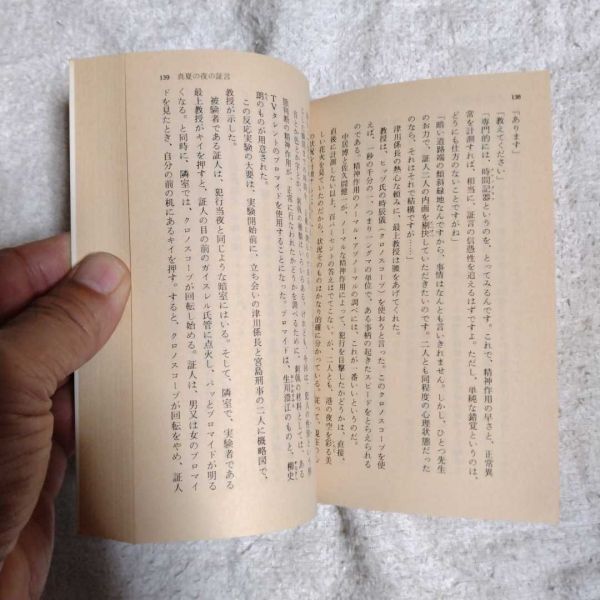 138
「あります」
「教えてください」
「専門的には、時間記器というのを、とってみるんです。これで、精神作用の早さと、正常異
常を計測すれば、相当に、証言の信憑性を追えるはずですよ。ただし、単純な錯覚というのは、
どうにも仕方のないことですがね」
「暗い道路端の傾斜緑地なんですから、事情はなんとも言いきれません。しかし、ひとつ先生
のお力で、証人二人の内面を剔抉していただきたいのです。二人とも同程度の心理状態だった
のなら、それはそれで結構ですが……」
津川係長の熱心な頼みに、最上教授は腰をあげてくれた。
教授は、ヒップ氏の時辰儀(クロノスコープ)を使おうと言った。このクロノスコープを使
えば、一秒の千分の一、つまり一シグマの単位で、ある事柄の起きたスピードをとらえられる
のである。精神作用のノーマル・アブノーマルの調べには、これが一番いいというのだ。
中居博と佐久間健一が、ノーマルな精神作用によって、犯行を目撃したかどうかは、直接、
直後に計測しない以上、百パーセントの答えはでてこない。が、二人とも、港の夜空を彩る美
しい花火を見ていたのだから、状況そのものはかなり的確に分かっている。従って、現在の
139 真夏の夜の証言
勝判断の精神作用が、正常に行なわれたかどうかを調べるために、刺戟の材料としては、ある
TVタレントのブロマイドを使用することになった。ブロマイドは、生川澄江のものと、柳史
朗のものが用意された。
この反応実験の大要は、実験開始前に、立ち会いの津川係長と宮島刑事の二人に概略図で、
教授が示した。
被験者である証人は、犯行当夜と同じような暗室にはいる。そして、隣室で、実験者である
最上教授がキイを押すと、証人の目の前のガイスレル氏管に点火し、パッとブロマイドが明る
くなる。と同時に、隣室では、クロノスコープが回転し始める。証人は、男又は女のブロマイ
ドを見たとき、自分の前の机にあるキイを押す。すると、クロノスコープが回転をやめ、証人